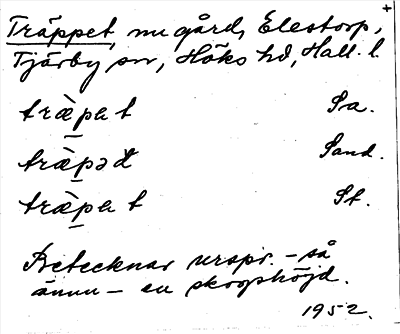 +
Träppet, nu gård, Elestorp,
Tjärby sn, Höks hd, Hall. l.
trὰpet Sa.
trὰpəđ Sand.
trὰpet St.
Betecknar urspr. – så
ännu – en skogshöjd.
1952.